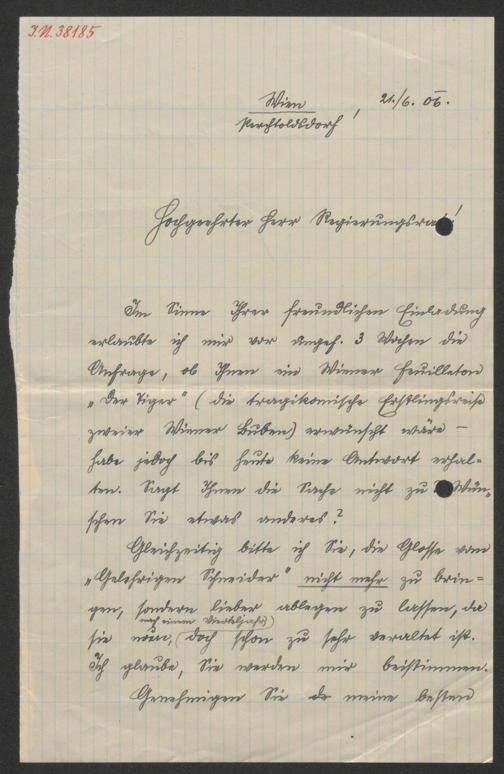 J.N. 38185
Wien, 21./6. 06.
Perchtoldsdorf
Hochgeehrter Herr Regierungsrat!
Im Sinne Ihrer freundlichen Einladung
erlaubte ich mir vor ungef. 3 Wochen die
Anfrage, ob Ihnen ein Wiener Feuilleton
„Der Tiger" (die tragikomische Erstlingsreise
zweier Wiener Buben) erwünscht wäre –
habe jedoch bis heute keine Antwort erhal=
ten. Sagt Ihnen die Sache nicht zu? Wün=
schen Sie etwas anderes?
Gleichzeitig bitte ich Sie, die Glosse vom
„Gelehrigen Schneider" nicht mehr zu brin=
gen, sondern lieber ablegen zu lassen, da
nach einem Vierteljahr)
sie nun, (doch schon zu sehr veraltet ist.
Ich glaube, Sie werden mir beistimmen.
Genehmigen Sie meine besten